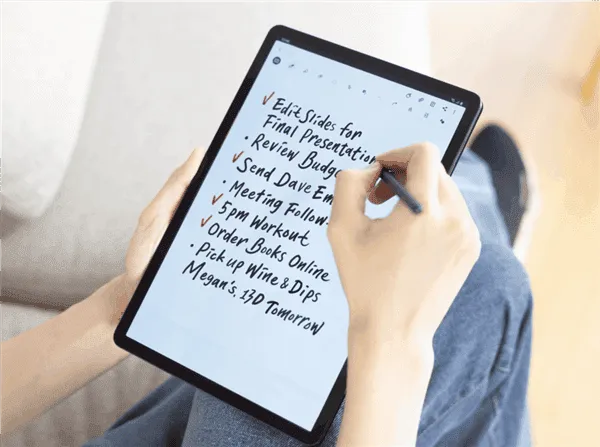 ✓ Edit Slides for
Final Presentation
• Review Budge
✓ Send Dave Em
• Meeting Follow-
✓ 5pm Workout
✓ Order Books Online
• Pick up Wine & Dips
Megan's, 13D Tomorrow